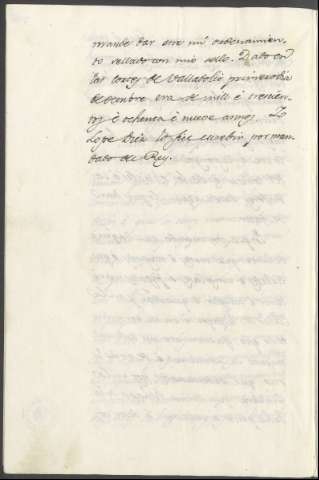 mande dar este mi ordenamien-
to sellado con mio sello. Dado en
las cortes de Valladolid primero dia
de
era de mill é trescien-
tos é ochenta é nueve annos. Yo
Lope Diaz lo fiz escrebir por man-
dado del Rey.